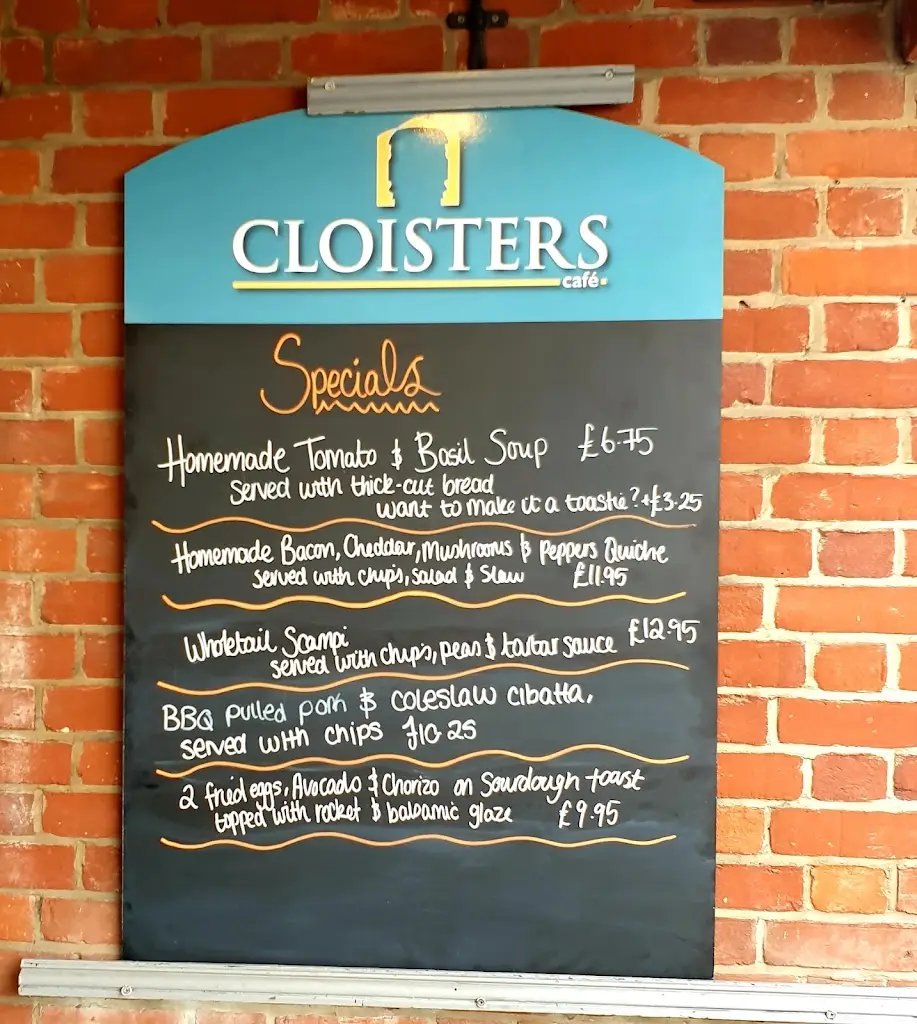 CLOISTERS
café
Specials
Homemade Tomato & Basil Soup £6.75
served with thick-cut bread
want to make it a toastie? +£3.25
Homemade Bacon, Cheddar, Mushrooms & Peppers Quiche
served with chips, salad & slaw £11.95
Wholetail Scampi £12.95
served with chips, peas & tartar sauce
BBQ pulled pork & coleslaw cibatta,
served with chips £10.25
2 fried eggs, Avocado & Chorizo on Sourdough toast
topped with rocket & balsamic glaze £9.95